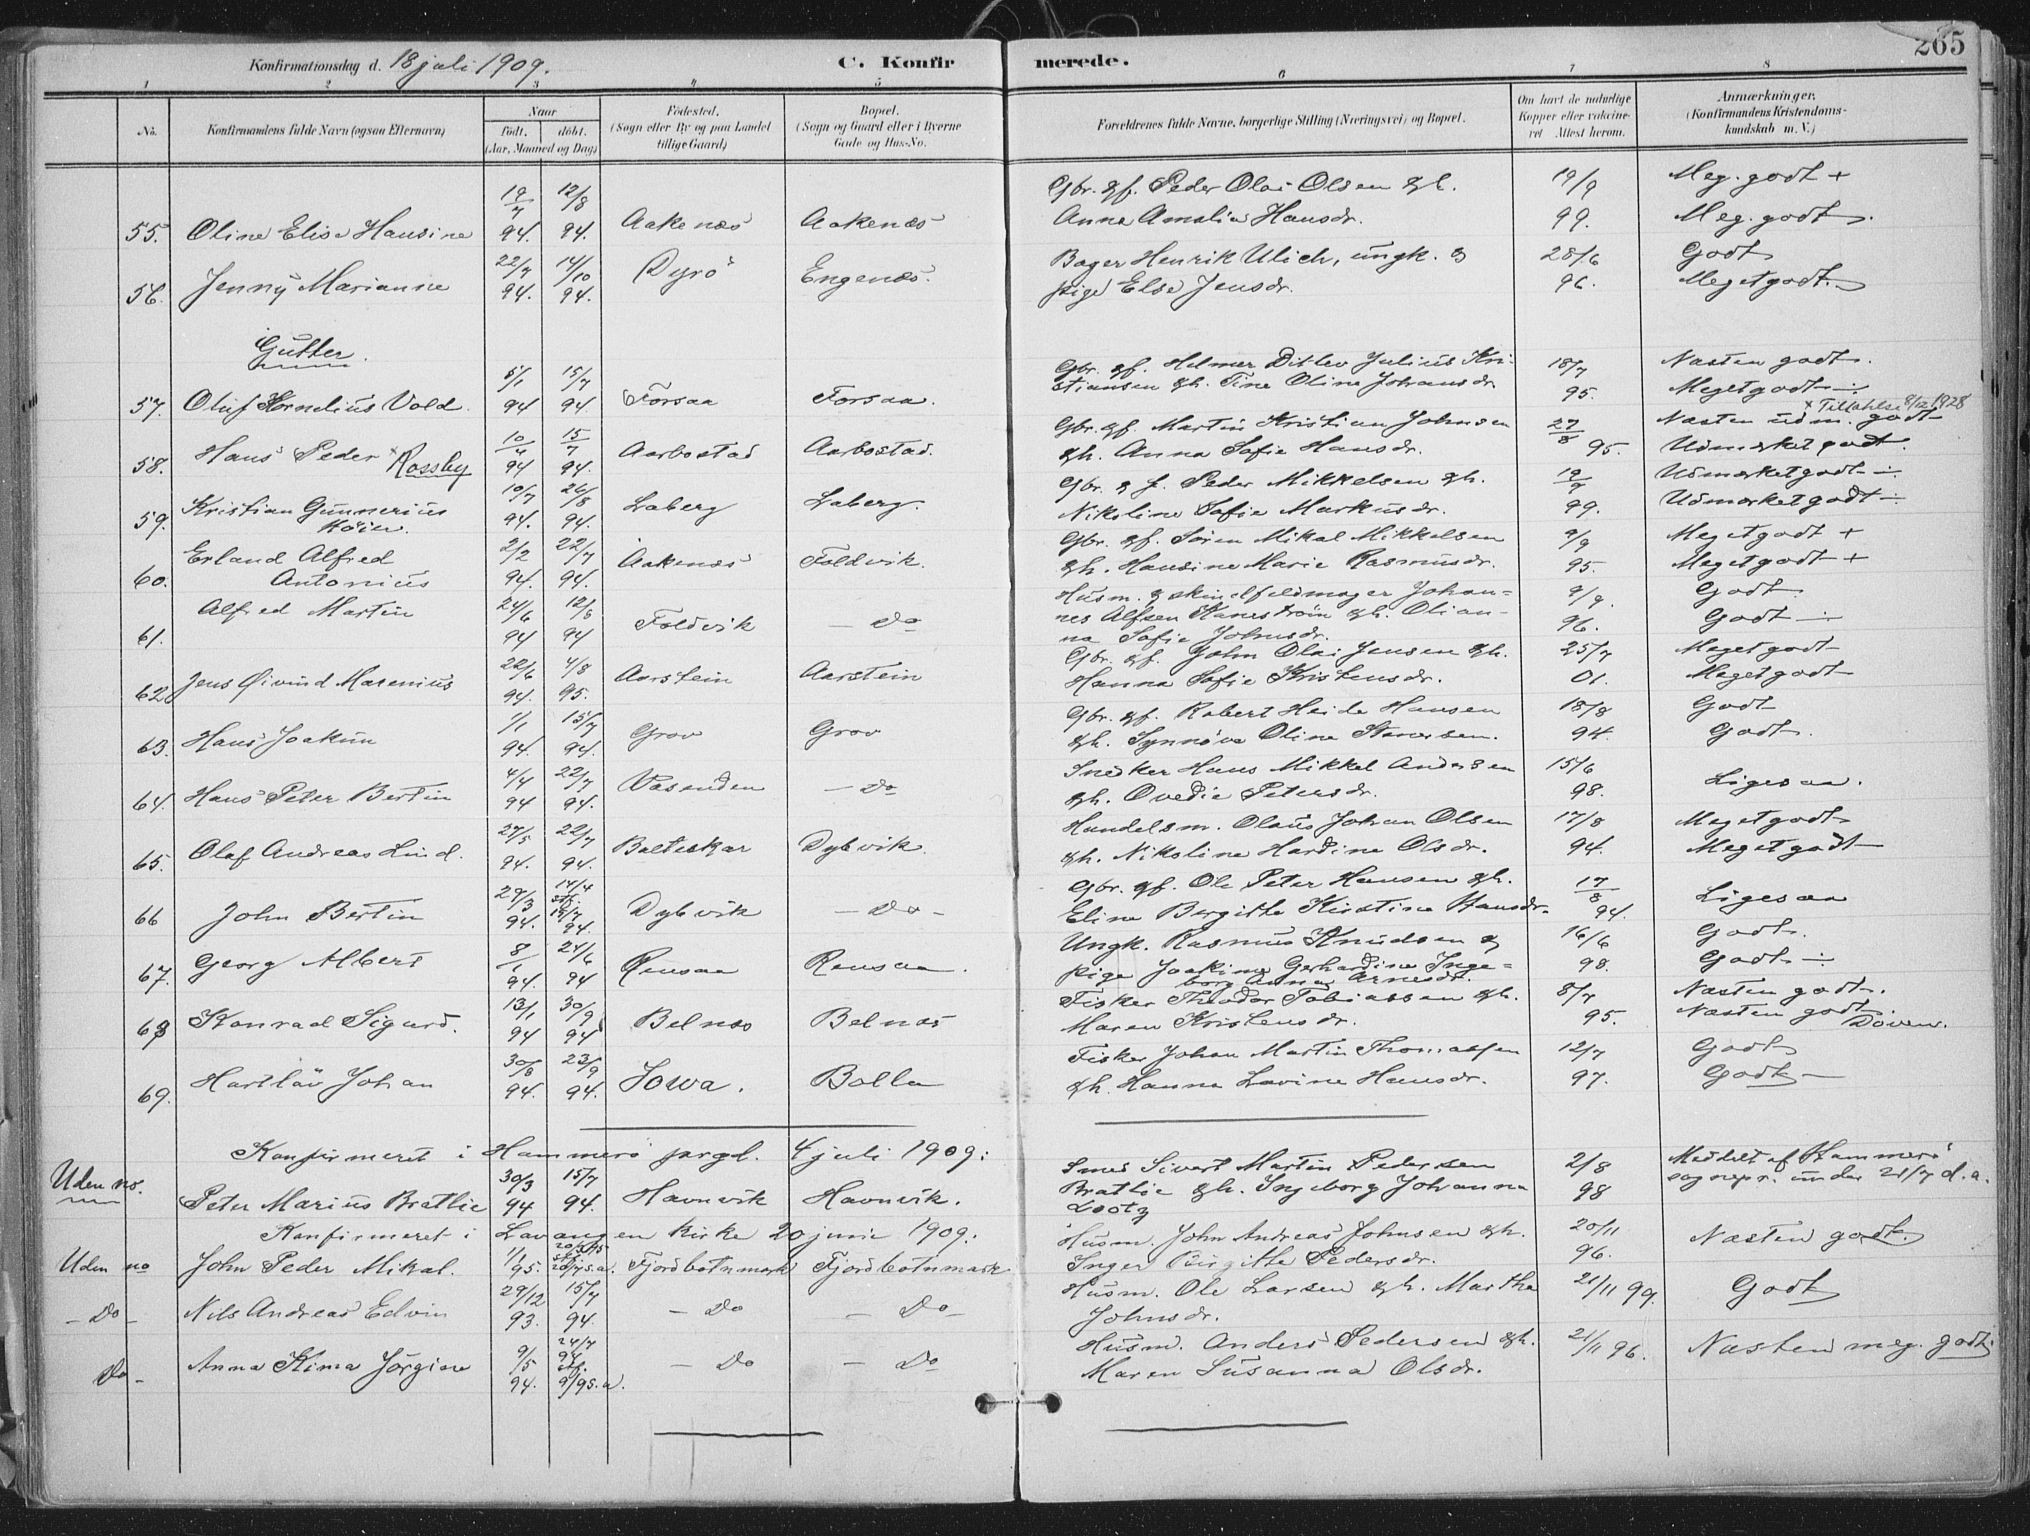 265
Konfirmationsdag d. 18 juli 1909.
C. Konfir merede.
1 2 3 4 5 6 7 8
No.
Konfirmandens fulde Navn (ogsaa Efternavn)
Naar
født. døbt.
(Aar, Maaned og Dag)
Fødested.
(Sogn eller By og paa Landet
tillige Gaard)
Bopæl.
(Sogn og Gaard eller i Byerne
Gade og Hus-No.
Forældrenes fulde Navne, borgerlige Stilling (Næringsvei) og Bopæl.
Om havt de naturlige
Kopper eller vaccine-
ret Attest herom.
Anmærkninger.
(Konfirmandens Kristendoms-
kundskab m. V.)
19/7 12/8 Gbr. gf. Peder Olai Olsen gh. 19/9 Meg. godt +
55. Oline Elise Hansine 94. 94. Aakenæs Aakenæs Anne Amalie Hansdr. 99. Meg. godt.
22/7 14/10 Dyrø Engenæs. Bager Henrik Ulich, ungk. og 28/6 Godt
56. Jenny Marianne 94. 94. pige Else Jensdr. 96. Meget godt.
Gutter.
5/1 15/7 Gbr. gf. Helmer Ditlev Julius Kri- 18/7 Næsten godt.
57. Oluf Kornelius Vold. 94 94. Forsaa Forsaa. stiansen gh. Tine Oline Johansdr. 95. Meget godt ÷
x Tilføielse 8/12 1928
10/4 15/7 Gbr. gf. Martin Kristian Johnsen 27/8 Næsten udm. godt
58. Hans Peder x Rossby 94 94. Aarbostad Aarbostad. gh. Anna Sofie Hansdr. 95. Udmærket godt.
10/7 26/8 Gbr. g f. Peder Mikkelsen gh. 19/9 Udmærket godt ÷
59. Kristian Gunnerius Høier. 94. 94. Laberg Laberg. Nikoline Sofie Markusdr. 99. Udmærket godt ÷
Erland Alfred 2/2 22/7 Gbr. gf. Søren Mikal Mikkelsen 9/9 Meget godt +
60. Antonius 94. 94. Aakenæs Foldvik. gh. Hansine Marie Rasmusdr. 95. Meget godt +
Alfred Martin 24/6 12/8 Husm. g skindfeldmager Johan- 9/9. Godt
61. 94 94 Foldvik — Do nes Alfsen Kanestrøm gh. Olian- 96. Godt ÷
na Sofie Johnsdr.
22/6 4/8 Gbr. gf. John Olai Jensen gh. 25/7 Meget godt
62. Jens Øivind Marenius 94. 95. Aarstein Aarstein Hanna Sofie Kristensdr. 01. Meget godt
1/1 15/7 Gbr. gf. Robert Heide Hansen 18/8 Godt
63. Hans Joakim 94. 94. Grov Grov gh. Synnøve Oline 94. Godt.
4/4 22/7 Snedker Hans Mikkel Andersen 15/6
64. Hans Peter Bertin 94 94. Vasenden — Do gh. Ovedie Petersdr. 98. Ligesaa.
27/5 22/7 Handelsm. Olaus Johan Olsen 17/8 Meget godt
65. Olaf Andreas Lind. 94. 94. Balteskar Dybvik. gh. Nikoline Hardine Olsdr. 94. Meget godt
29/3 14/4 stf. 15/7 Gbr. gf. Ole Peter Hansen gh. 17/8
66 John Bertin 94. 94. Dybvik — Do - Eline Bergitte Kristine Hansdr. 94. Ligesaa
8/1 24/6 Ungk. Rasmus Knudsen og 16/6 Godt.
67. Georg Albert 94. 94 Rensaa Rensaa. pige Joakime Gerhardine Inge- 98. Godt ÷
borg Anna Arnesdr.
13/1 30/9 Fisker Theodor Tobiassen gh. 8/7 Næsten godt.
68 Konrad Sigurd. 94 94 Belnæs Belnæs Maren Kristensdr. 95. Næsten godt. Doven.
30/8 23/9 Fisker Johan Martin Thomassen 12/7 Godt
69. Hartløv Johan 94. 94. Sowa. Bolla gh. Hanna Lavine Hansdr. 97. Godt —
Konfirmeret i Hammerø prgd. 4 juli 1909:
Uden no. 30/3 15/7 Smed Sivert Martin Pedersen 2/8 Meddelt af Hammerø
Peter Marius Brattlie 94 94. Havnvik Havnvik. Brattlie gh. Ingeborg Johanna 98 sognepr. under 21/7 d. a.
Lootz
Konfirmeret i Lavangen kirke 20 juni 1909:
1/1 Husm. John Andreas Johnsen gh. 20/11
Uden no John Peder Mikal. 95. Fjordbotnmark Fjordbotnmark Inger Birgitte Pedersdr. 96. Næsten godt.
29/12 15/7 Husm. Ole Larsen gh. Martha 21/11 99. Godt
— Do — Nils Andreas Edvin 93. 94. — Do — Do — Johnsdr.
9/5 24/7 94 stf. Husm. Anders Pedersen gh. 21/11 96. Næsten meg. godt.
Do - Anna Kima Jørgine 94. 9/95.a. — Do — Do Maren Susanna Olsdr.